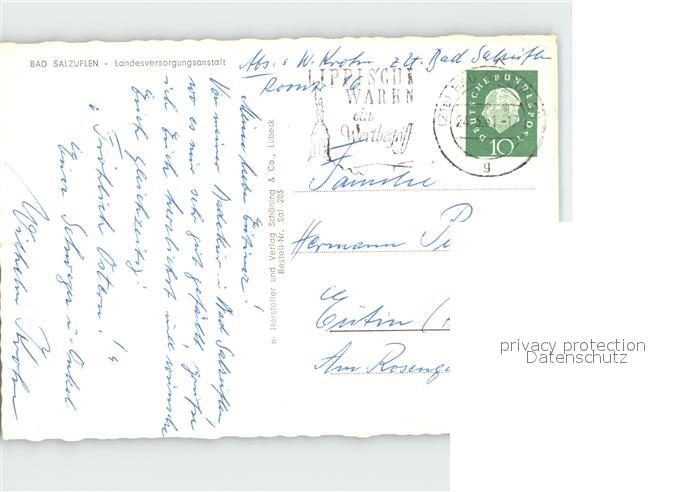 BAD SALZUFLEN - Landesversorgungsanstalt
Abs.: W. Krohn z.Zt. Bad Salzuflen
LIPPISCHE
WAREN
ein
Wertbegriff
DEUTSCHE BUNDESPOST
10
g
Familie
Hermann Pe
Eutin (H
Am Rosenga
n- Hersteller und Verlag Schöning & Co., Lübeck
Bestell-Nr. Sal 203
Meine lieben Eutiner!
Von meiner Badekur in Bad Salzuflen,
wo es mir sehr gut gefällt, grüße
ich Euch herzlichst und wünsche
Euch gleichzeitig
ein Fröhlich Ostern!
Euer Schwager u. Onkel
Wilhelm Krohn
privacy protection
Datenschutz